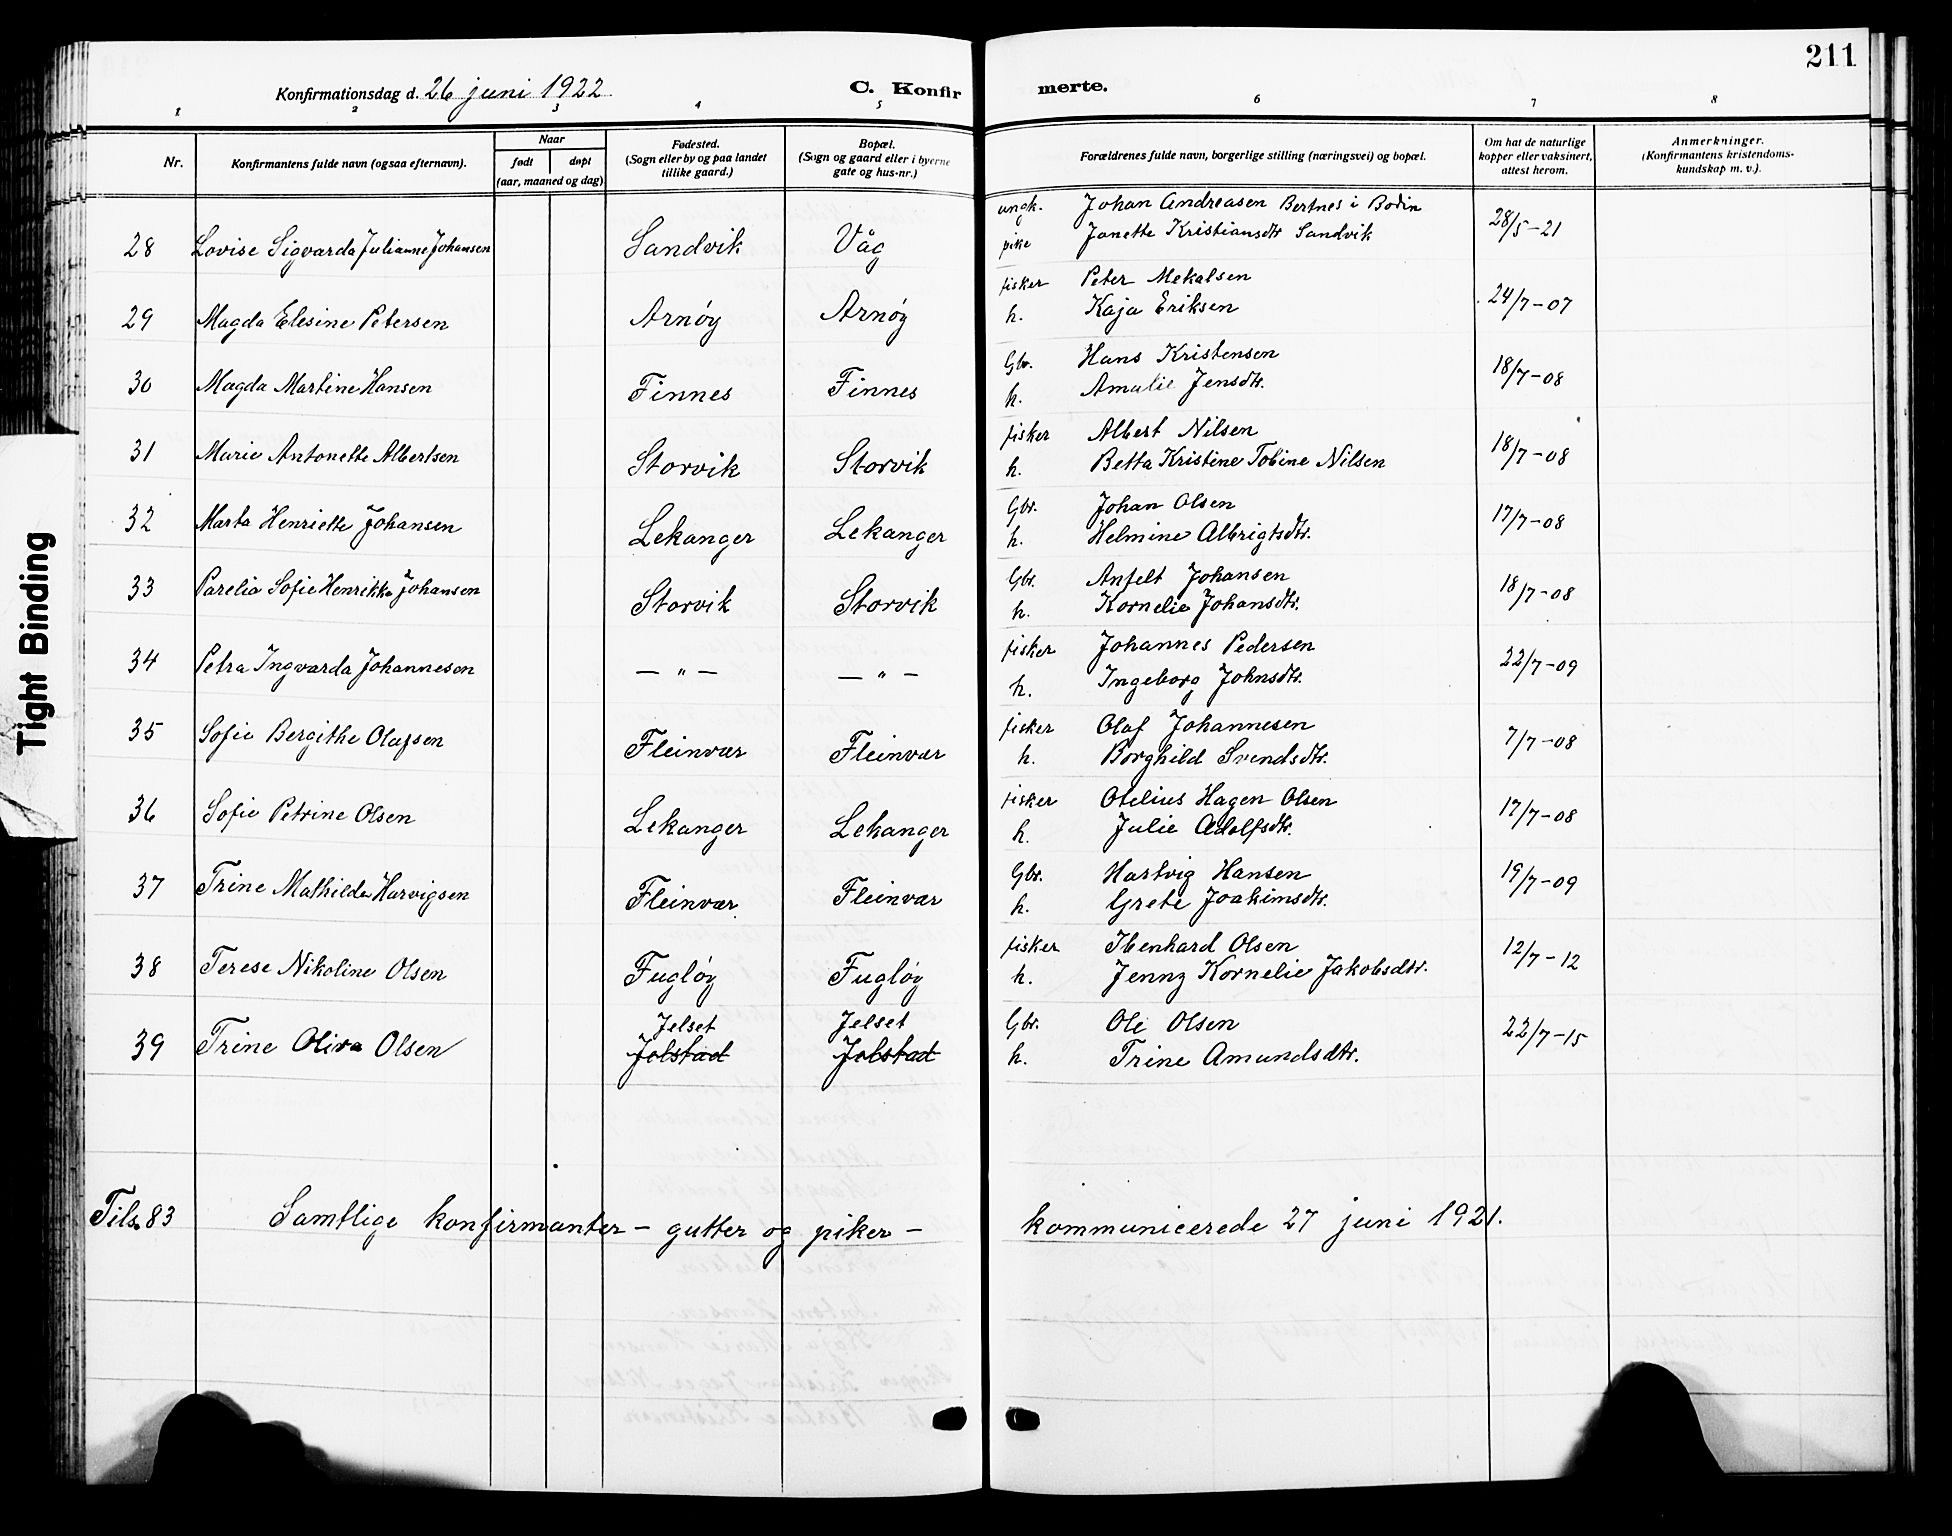 211
Konfirmationsdag d. 26 juni 1922
C. Konfirmerte.
1 2 3 4 5 6 7 8
Nr.
Konfirmantens fulde navn (ogsaa efternavn).
Naar
født døpt
(aar, maaned og dag)
Fødested.
(Sogn eller by og paa landet
tillike gaard.)
Bopæl.
(Sogn og gaard eller i byerne
gate og hus-nr.)
Forældrenes fulde navn, borgerlige stilling (næringsvei) og bopæl.
Om hat de naturlige
kopper eller vaksinert,
attest herom.
Anmerkninger.
(Konfirmantens kristendoms-
kundskap m. v.).
ungk. Johan Andreasen Bertnes i Bodin
28 Lovise Sigvarda Julianne Johansen Sandvik Våg pike Janette Kristiansdtr Sandvik 28/5-21
fisker Peter Mekalsen
29 Magda Elesine Petersen Arnøy Arnøy h. Kaja Eriksen 24/7-07
Gbr. Hans Kristensen
30 Magda Martine Hansen Finnes Finnes h. Amalie Jensdtr. 18/7-08
fisker Albert Nilsen
31 Marie Antonette Albertsen Storvik Storvik h. Betta Kristine Tobine Nilsen 18/7-08
Gbr. Johan Olsen
32 Marta Henriette Johansen Lekanger Lekanger h. Helmine Albrigtsdtr. 17/7-08
Gbr. Anfelt Johansen
33 Parelia Sofie Henrikke Johansen Storvik Storvik h. Kornelie Johansdtr. 18/7-08
fisker Johannes Pedersen
34 Petra Ingvarda Johannesen — " — — " — h. Ingeborg Johnsdtr. 22/7-09
fisker Olaf Johannesen
35 Sofie Bergithe Olafsen Fleinvær Fleinvær h. Borghild Svendsdtr. 7/7-08
fisker Otelius Hagen Olsen
36 Sofie Petrine Olsen Lekanger Lekanger h. Julie Adolfsdtr. 17/7-08
Gbr. Hartvig Hansen
37 Trine Mathilde Harvigsen Fleinvær Fleinvær h. Grete Joakimsdtr. 19/7-09
fisker Ibenhard Olsen
38 Terese Nikoline Olsen Fugløy Fugløy h. Jenny Kornelie Jakobsdtr. 12/7-12
Jelset Jelset Gbr. Ole Olsen
39 Trine Oliva Olsen Jolstad Jolstad h. Trine Amundsdtr. 22/7-15
Tils. 83 Samtlige konfirmanter – gutter og piker – kommunicerede 27 juni 1921.
Tight Binding